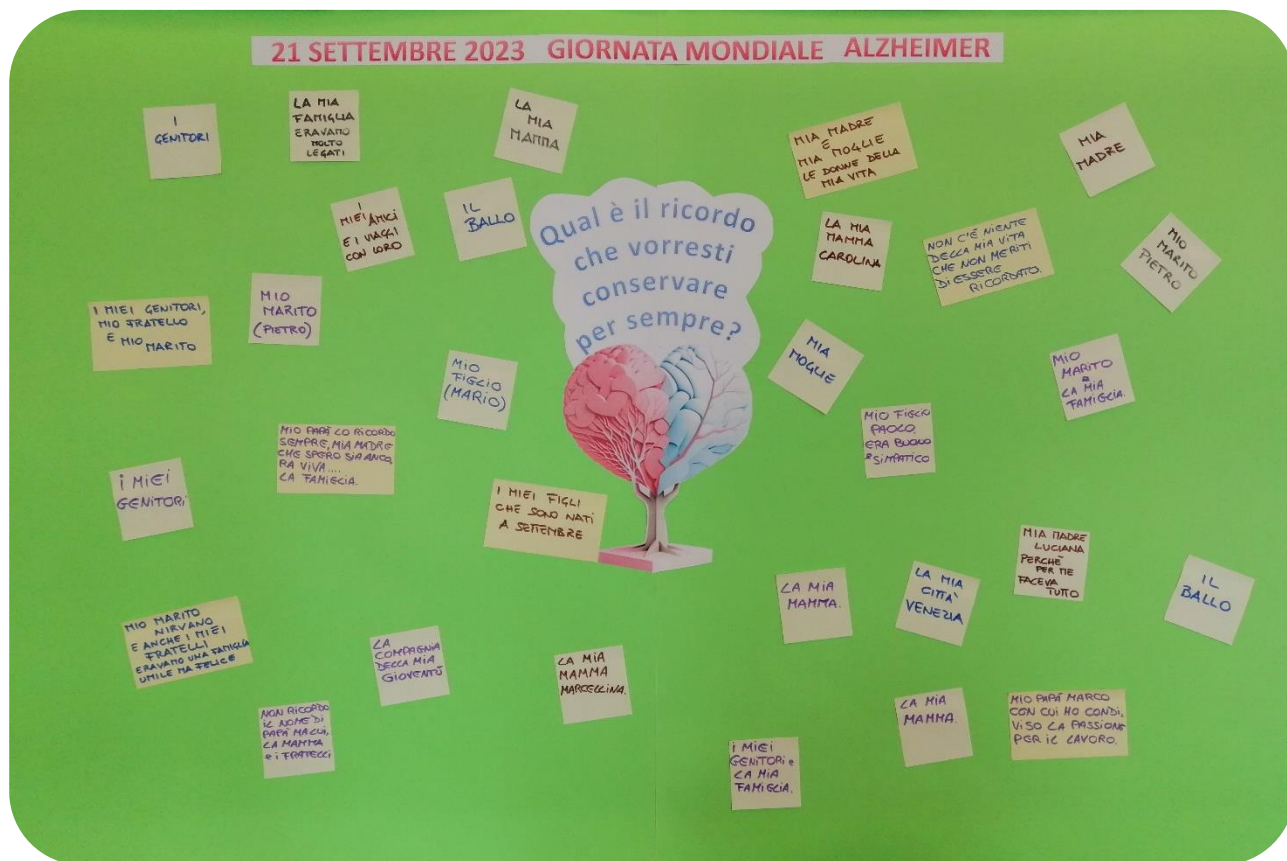 21 SETTEMBRE 2023 GIORNATA MONDIALE ALZHEIMER
I
GENITORI
LA MIA
FAMIGLIA
ERAVAMO
MOLTO
LEGATI
LA
MIA
MAMMA
MIA MADRE
E
MIA MOGLIE
LE DONNE DELLA
MIA VITA
MIA
MADRE
I
MIEI AMICI
E I VIAGGI
CON LORO
IL
BALLO
Qual è il ricordo
che vorresti
conservare
per sempre?
LA MIA
MAMMA
CAROLINA
NON C'È NIENTE
DELLA MIA VITA
CHE NON MERITI
DI ESSERE
RICORDATO.
MIO
MARITO
PIETRO
I MIEI GENITORI,
MIO FRATELLO
E MIO MARITO
MIO
MARITO
(PIETRO)
MIO
FIGLIO
(MARIO)
MIA
MOGLIE
MIO
MARITO e
LA MIA
FAMIGLIA.
MIO PAPÀ LO RICORDO
SEMPRE, MIA MADRE
CHE SPERO SIA ANCO,
RA VIVA....
LA FAMIGLIA.
MIO FIGLIO
PAOLO
ERA BUONO
e SIMPATICO
I MIEI
GENITORI
I MIEI FIGLI
CHE SONO NATI
A SETTEMBRE
MIA MADRE
LUCIANA
PERCHÈ
PER ME
FACEVA
TUTTO
LA MIA
MAMMA.
LA MIA
CITTÀ
VENEZIA
IL
BALLO
MIO MARITO
NIRVANO
E ANCHE I MIEI
FRATELLI
ERAVAMO UNA FAMIGLIA
UMILE MA FELICE
LA
COMPAGNIA
DELLA MIA
GIOVENTÙ
LA MIA
MAMMA
MARCELLINA.
NON RICORDO
IL NOME DI
PAPÀ MA LUI,
LA MAMMA
e I FRATELLI
LA MIA
MAMMA.
MIO PAPÀ MARCO
CON CUI HO CONDI,
VISO LA PASSIONE
PER IL LAVORO.
I MIEI
GENITORI e
LA MIA
FAMIGLIA.